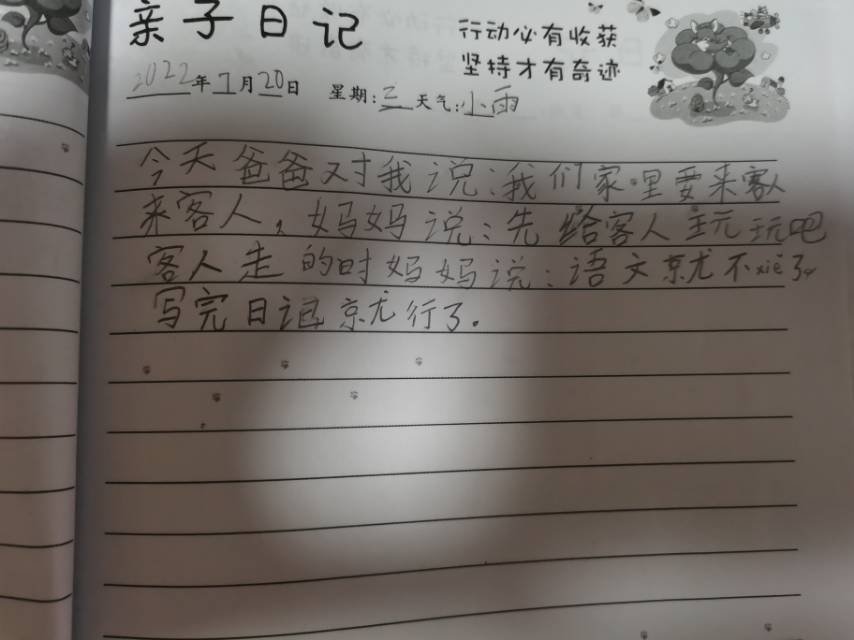 亲子日记
行动必有收获
坚持才有奇迹
2022年7月20日 星期:三 天气:小雨
今天爸爸对我说:我们家里要来客人
来客人,妈妈说:先给客人玩玩吧
客人走的时妈妈说:语文就不xiě了
写完日记就行了.